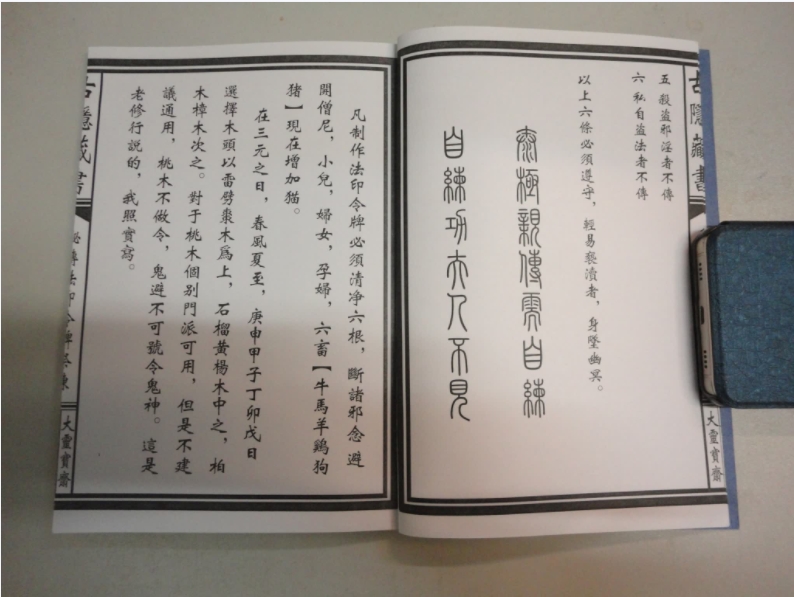 五 殺盜邪淫者不傳
六 私自盜法者不傳
以上六條必須遵守，輕易褻瀆者，身墜幽冥。
極親傳需自練
自練功夫人不見
古隱藏書
大靈寶齋
凡制作法印令牌必須清净六根，斷諸邪念避
開僧尼，小兒，婦女，孕婦，六畜【牛馬羊鷄狗
猪】現在增加猫。
在三元之日，春風夏至，庚申甲子丁卯戊日
選擇木頭以雷劈棗木爲上，石榴黄楊木中之，柏
木樟木次之。對于桃木個别門派可用，但是不建
議通用，桃木不做令，鬼避不可號令鬼神。這是
老修行説的，我照實寫。
古隱藏書
秘傳法印令牌
大靈寶齋